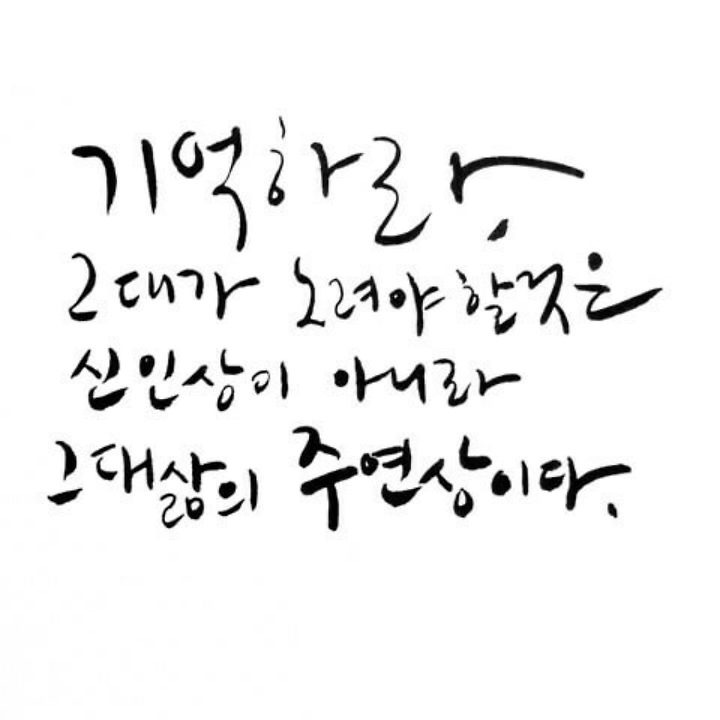 기억하라.
그대가 노려야 할것은
신인상이 아니라
그대 삶의 주연상이다.